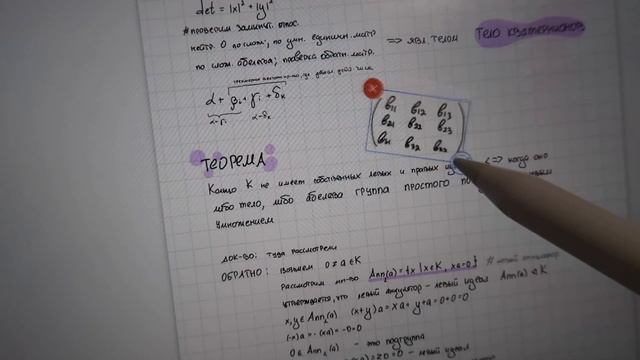 det = |x|² + |y|²
# проверим замкнут. относ.
нейтр. 0 по слож; по умн. единичн. матр.
по слож. абелева; проверка обратн. матр.
=> явл. телом
тело кватернионов
α + βi + γj + δk
b11 b12 b13
b21 b22 b23
b31 b32 b33
ТЕОРЕМА
Кольцо K не имеет собственных левых и правых <=> когда оно
либо тело, либо абелева группа простого
умножением
док-во: туда рассмотрели
ОБРАТНО: Возьмем 0 ≠ a ∈ K
рассмотрим мн-во Ann(a) = {x | x ∈ K, xa = 0} # левый аннулятор
утверждается, что левый аннулятор - левый идеал Ann(a) ⊲ K
x, y ∈ Ann(a) (x+y)a = xa + ya = 0+0=0
(-x)a = -(xa) = -0 = 0
0 ∈ Ann(a) - это подгруппа
= z0 = 0 - левый идеал